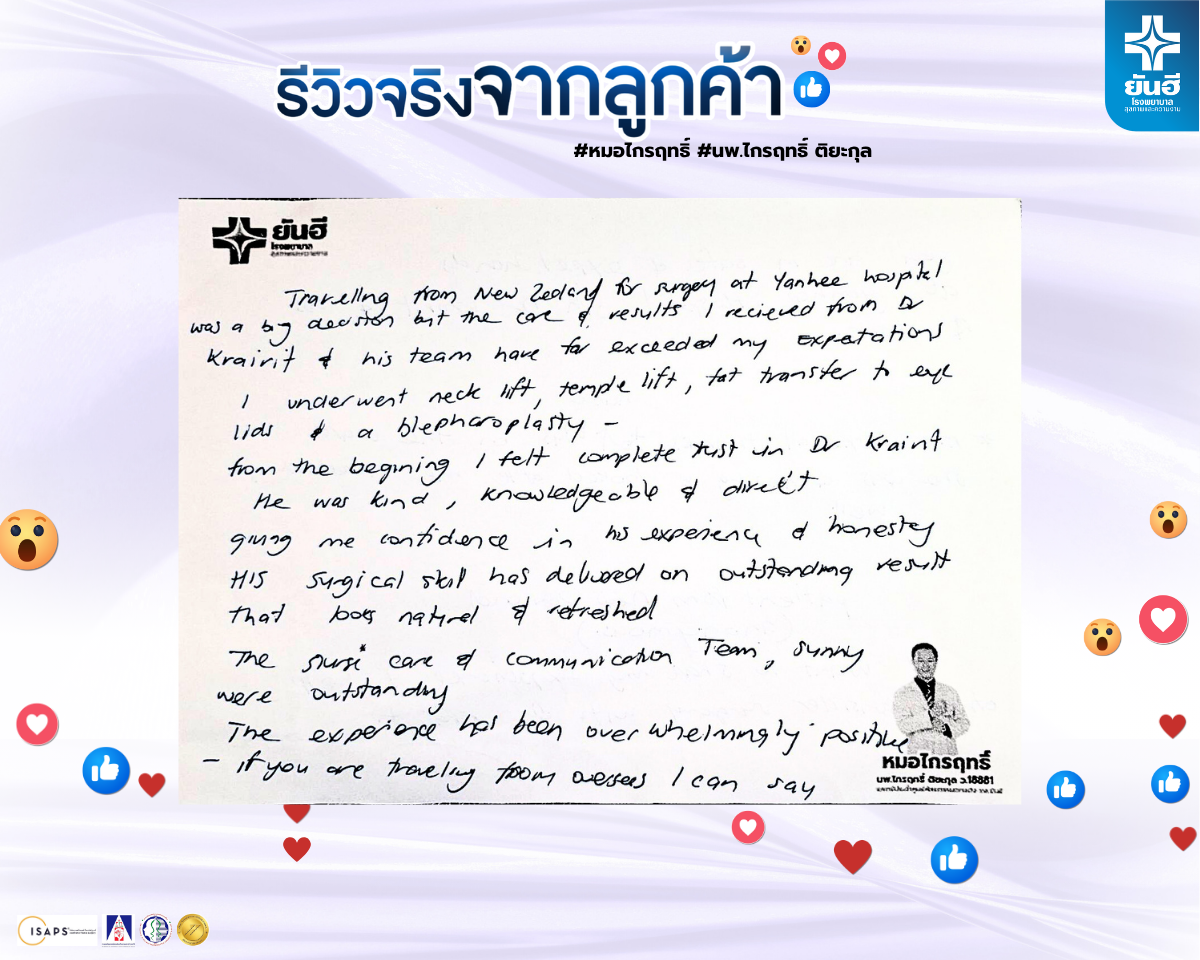 รีวิวจริงจากลูกค้า
#หมอไกรฤทธิ์ #นพ.ไกรฤทธิ์ ติยะกุล
ยันฮี
โรงพยาบาล
สุขภาพและความงาม
ยันฮี
โรงพยาบาล
สุขภาพและความงาม
Travelling from New Zealand for surgery at Yanhee hospital
was a big decision but the care & results I recieved from Dr
Krairit & his team have far exceeded my expectations
I underwent neck lift, temple lift, fat transfer to eye
lids & a blepharoplasty -
from the begining I felt complete trust in Dr Krairit
He was kind, knowledgeable & direct
giving me confidence in his experience & honesty
His surgical skill has delivered an outstanding result
that looks natural & refreshed
The nurse care & communication Team, sunny
were outstanding
The experience has been over whelmingly positive
- if you are traveling from overseas I can say
หมอไกรฤทธิ์
นพ.ไกรฤทธิ์ ติยะกุล ว.18881
ISAPS